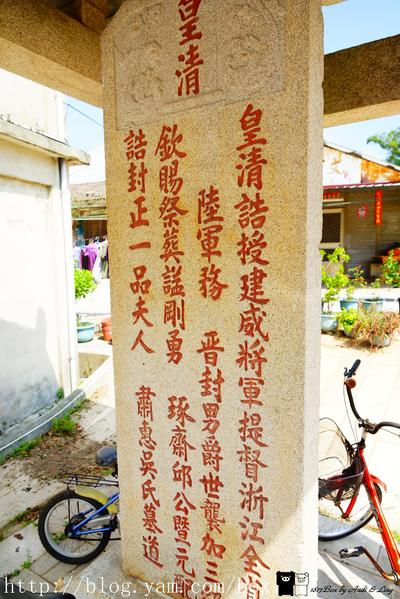 皇清
皇清誥授建威將軍提督浙江全
陸軍務 晉封男爵世襲加三
欽賜祭葬諡剛勇 琢齋邱公暨元
誥封正一品夫人 肅惠吳氏墓道
http://blog.yam.com/box
1817Box by Andi & Ling